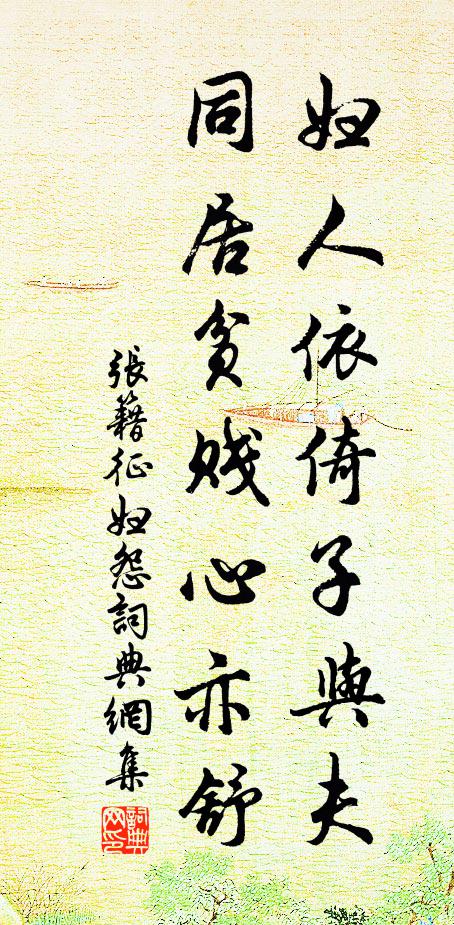 妇人依倚子與夫
同居貧賤心亦舒
張籍征妇怨詞典網集
詞典网印